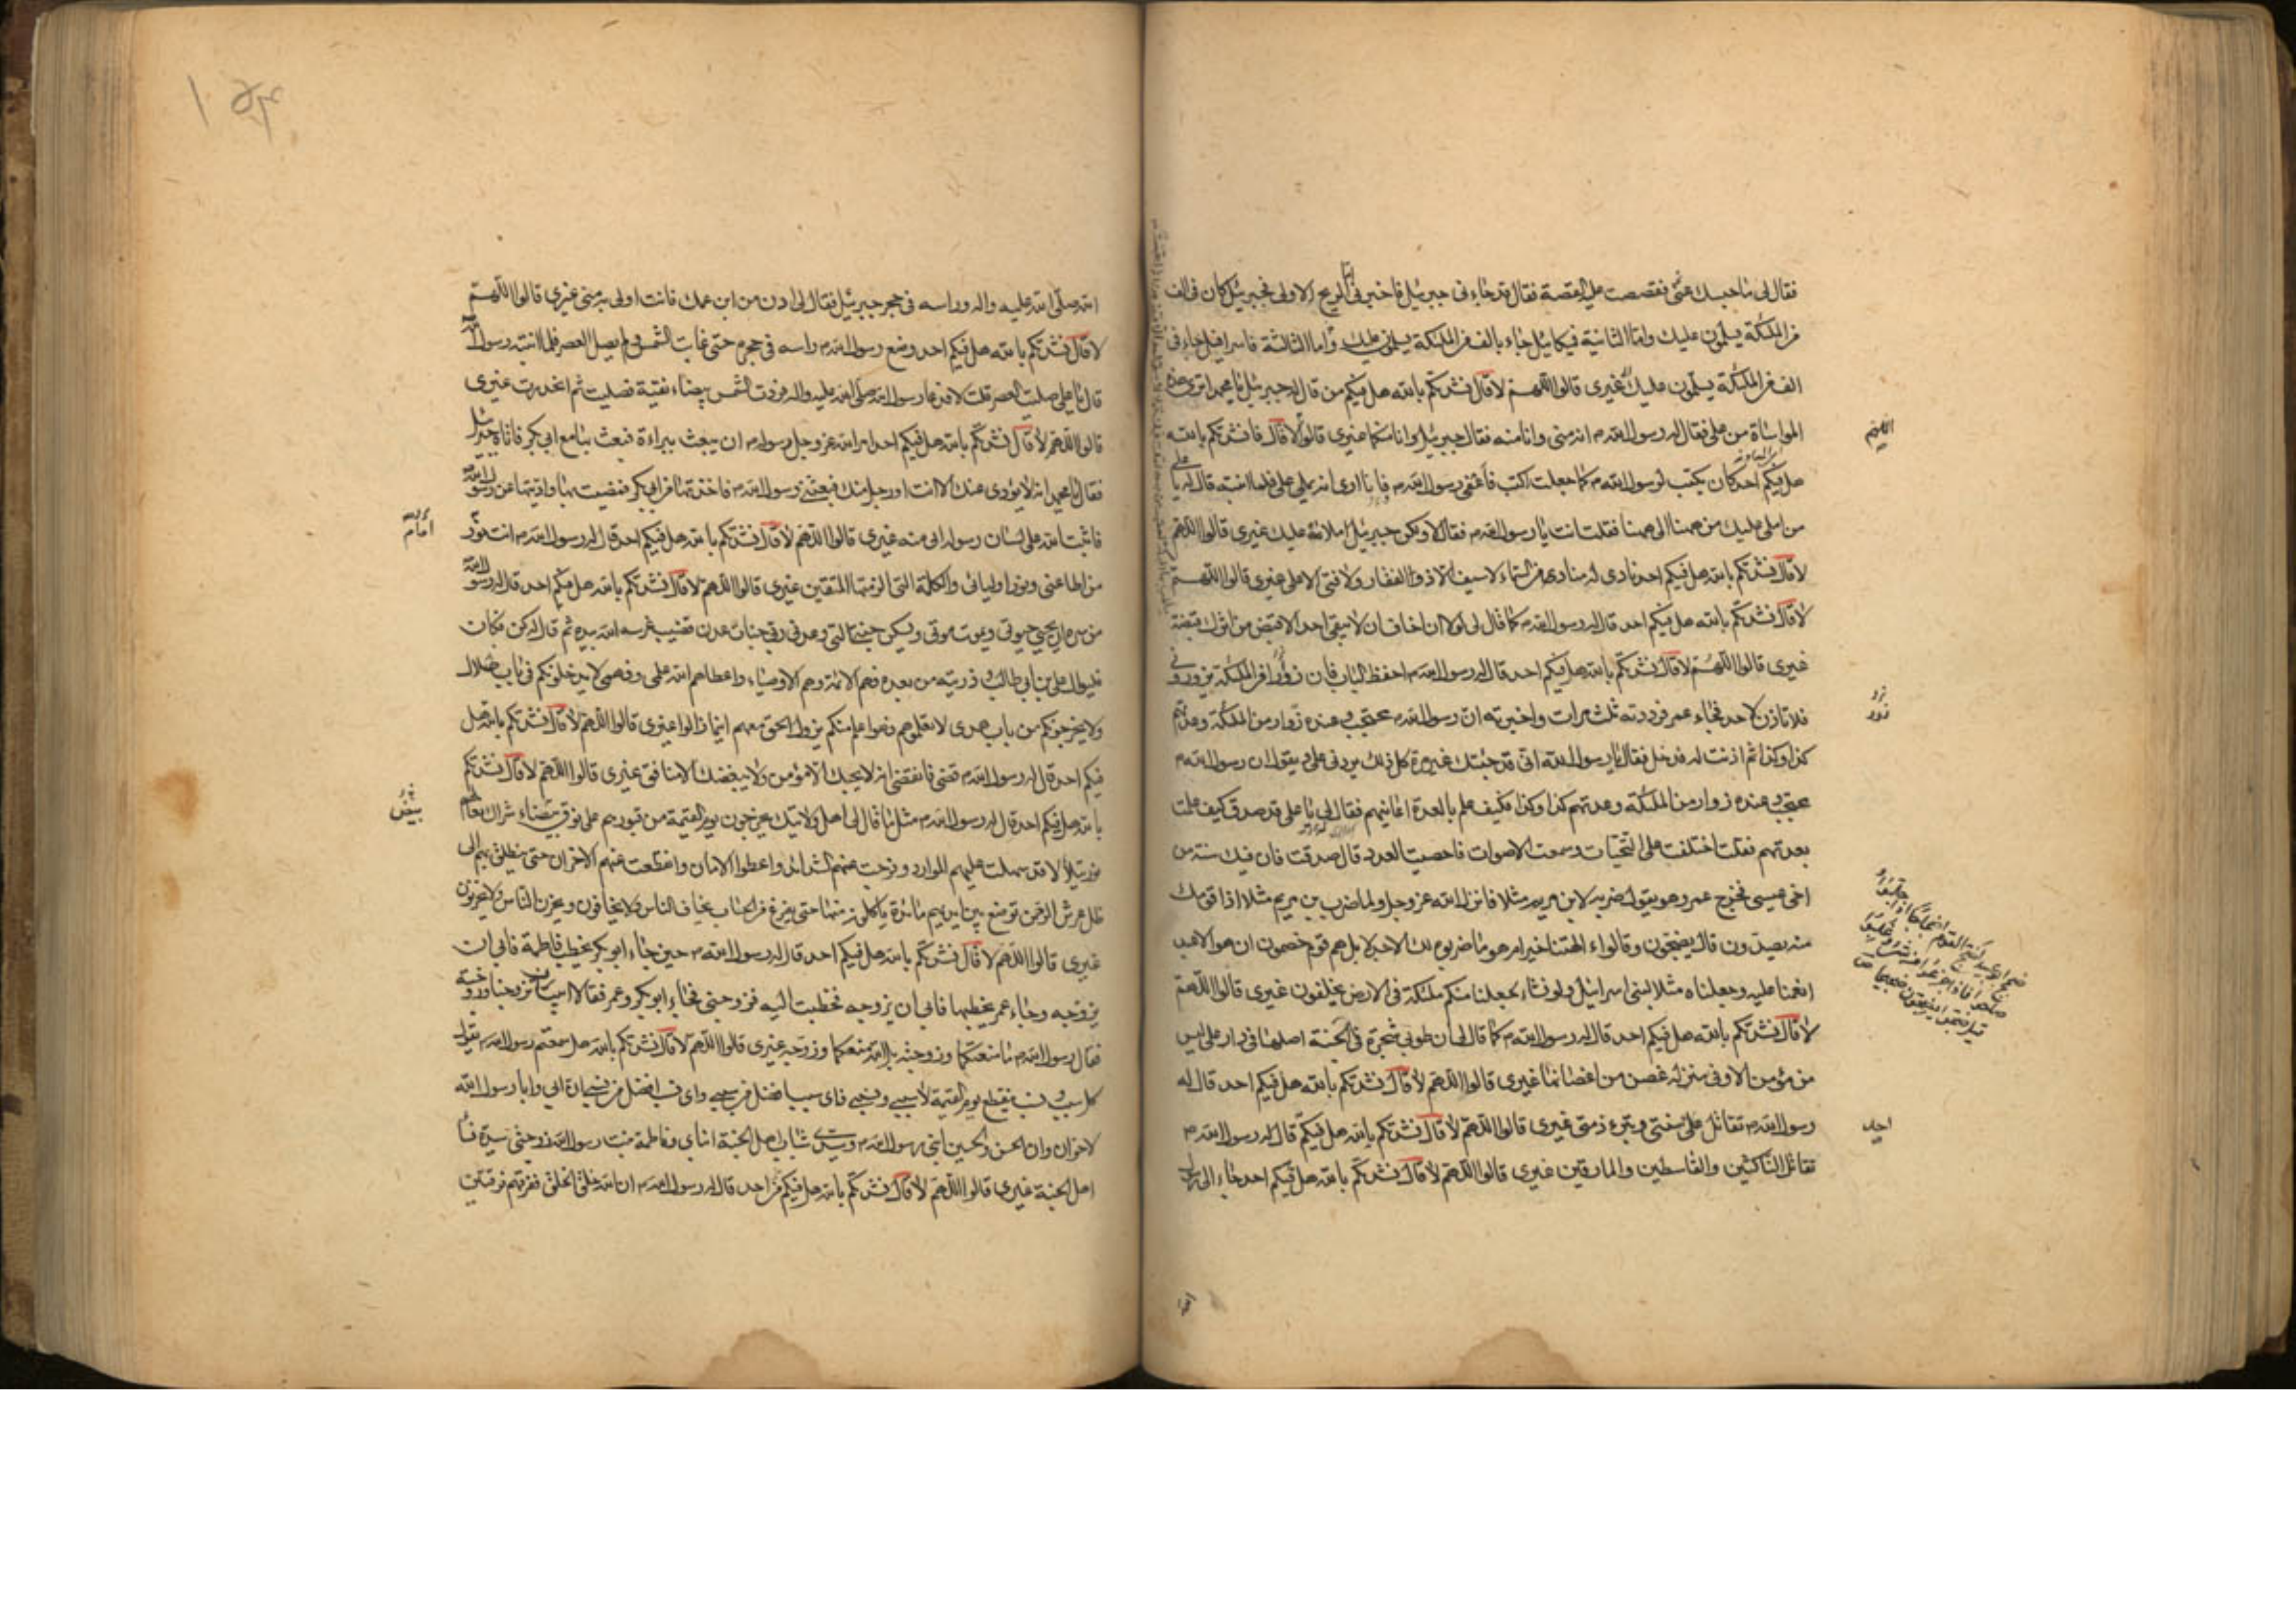 فقال لى ما حبسك عنى فقصصت عليه القصة فقال قد جاءنى جبرئيل فاخبرنى اما الريح الاولى فجبرئيل كان فى الف
من الملئكة يسلمون عليك واما الثانية فميكائيل جاء بالف من الملئكة يسلمون عليك واما الثالثة فاسرافيل جاء فى
الف من الملئكة يسلمون عليك غيرى قالوا اللهم لا قال نشدتكم بالله هل فيكم من قال له جبرئيل يا محمد اترى هذه
المواساة من على فقال له رسول الله ص انه منى وانا منه فقال جبرئيل وانا منكما غيرى قالوا لا قال فانشدتكم بالله
هل فيكم احد كان يكتب لرسول الله ص كما جعلت اكتب فاغفى رسول الله ص فانا ارى انه يملى على فلما انتبه قال له يا على
من املى عليك من ههنا الى ههنا فقلت انت يا رسول الله ص فقال لا ولكن جبرئيل املاه عليك غيرى قالوا اللهم
لا قال نشدتكم بالله هل فيكم احد نادى له مناد من السماء لا سيف الا ذو الفقار ولا فتى الا على غيرى قالوا اللهم
لا قال نشدتكم بالله هل فيكم احد قال له رسول الله ص كما قال لى لولا ان اخاف ان لا يبقى احد الا قبض من اثرك قبضة
غيرى قالوا اللهم لا قال نشدتكم بالله هل فيكم احد قال له رسول الله ص احفظ الباب فان زوارا من الملئكة يزورونى
فلا تاذن لاحد فجاء عمر فرددته ثلث مرات واخبرته ان رسول الله ص محتجب وعنده زوار من الملئكة وعدتهم
كذا وكذا ثم اذنت له فدخل فقال يا رسول الله انى قد جئتك غير مرة كل ذلك يردنى على ويقول ان رسول الله ص
محتجب وعنده زوار من الملئكة وعدتهم كذا وكذا فكيف علم بالعدة اعاينهم فقال لى يا على قد صدق كيف علمت
بعدتهم فقلت اختلفت على التحيات وسمعت الاصوات فاحصيت العدد قال صدقت فان فيك سنة من
اخى عيسى فخرج عمر وهو يقول ضربه لابن مريم مثلا فانزل الله عز وجل ولما ضرب بن مريم مثلا اذا قومك
منه يصدون قال يضجون وقالوا ءالهتنا خير ام هو ما ضربوه لك الا جدلا بل هم قوم خصمون ان هو الا عبد
انعمنا عليه وجعلناه مثلا لبنى اسرائيل ولو نشاء لجعلنا منكم ملئكة فى الارض يخلفون غيرى قالوا اللهم
لا قال نشدتكم بالله هل فيكم احد قال له رسول الله ص كما قال لى ان طوبى شجرة فى الجنة اصلها فى دار على ليس
من مؤمن الا وفى منزله غصن من اغصانها غيرى قالوا اللهم لا قال نشدتكم بالله هل فيكم احد قال له
رسول الله ص تقاتل على سنتى وتبرء ذمتى غيرى قالوا اللهم لا قال نشدتكم بالله هل فيكم قال له رسول الله ص
تقاتل الناكثين والقاسطين والمارقين غيرى قالوا اللهم لا قال نشدتكم بالله هل فيكم احد جاء الى رسول
اللهم
زور
احد
الله صلى الله عليه واله وراسه فى حجر جبرئيل فقال لى ادن من ابن عمك فانت اولى به منى غيرى قالوا اللهم
لا قال نشدتكم بالله هل فيكم احد وضع رسول الله ص راسه فى حجره حتى غابت الشمس ولم يصل العصر فلما انتبه رسول الله
قال يا على صليت العصر قلت لا فدعا رسول الله صلى الله عليه واله فردت الشمس بيضاء نقية فصليت ثم انحدرت غيرى
قالوا اللهم لا قال نشدتكم بالله هل فيكم احد امر الله عز وجل رسوله ص ان يبعث ببراءة فبعث بها مع ابى بكر فاتاه جبرئيل
فقال يا محمد انه لا يؤدى عنك الا انت او رجل منك فبعثنى رسول الله ص فاخذتها من ابى بكر فمضيت بها واديتها عن رسول الله
فاثبت الله على لسان رسوله انى منه غيرى قالوا اللهم لا قال نشدتكم بالله هل فيكم احد قال له رسول الله ص انت نور
من اطاعنى ونور اوليائى والكلمة التى الزمتها المتقين غيرى قالوا اللهم لا قال نشدتكم بالله هل فيكم احد قال له رسول الله
من سره ان يحيى حيوتى ويموت موتى ويسكن جنتى التى وعدنى ربى جنات عدن قضيب غرسه الله بيده ثم قال له كن فكان
فليوال على بن ابى طالب وذريته من بعده فهم الائمة وهم الاوصياء واعطاهم الله علمى وفهمى لا يدخلونكم فى باب ضلال
ولا يخرجونكم من باب هدى لا تعلموهم فهم اعلم منكم يزول الحق معهم اينما زالوا غيرى قالوا اللهم لا قال نشدتكم بالله هل
فيكم احد قال له رسول الله ص قضى فانقضى انه لا يحبك الا مؤمن ولا يبغضك الا منافق غيرى قالوا اللهم لا قال نشدتكم
بالله هل فيكم احد قال له رسول الله ص مثل ما قال لى اهل ولايتك يخرجون يوم القيمة من قبورهم على نوق بيضاء شراك نعالهم
نور يتلالا قد سهلت عليهم الموارد وفرجت عنهم الشدائد واعطوا الامان وانقطعت عنهم الاحزان حتى ينطلق بهم الى
ظل عرش الرحمن توضع بين ايديهم مائدة ياكلون منها حتى يفرغ من الحساب يخاف الناس ولا يخافون ويحزن الناس ولا يحزنون
غيرى قالوا اللهم لا قال نشدتكم بالله هل فيكم احد قال له رسول الله ص حين جاء ابو بكر يخطب فاطمة فابى ان
يزوجه وجاء عمر يخطبها فابى ان يزوجه فخطبت اليه فزوجنى فجاء ابو بكر وعمر فقالا ابيت ان تزوجنا وزوجته
فقال رسول الله ص ما منعتكما وزوجته بل الله منعكما وزوجه غيرى قالوا اللهم لا قال نشدتكم بالله هل سمعتم رسول الله ص يقول
كل سبب ونسب منقطع يوم القيمة الا سببى ونسبى فاى سبب افضل من سببى واى نسب افضل من نسبى ان ابى وابا رسول الله
لاخوان وان الحسن والحسين ابنى رسول الله ص وسيدى شباب اهل الجنة ابناى وفاطمة بنت رسول الله زوجتى سيدة نساء
اهل الجنة غيرى قالوا اللهم لا قال نشدتكم بالله هل فيكم من احد قال له رسول الله ص ان الله خلق الخلق ففرقهم فرقتين